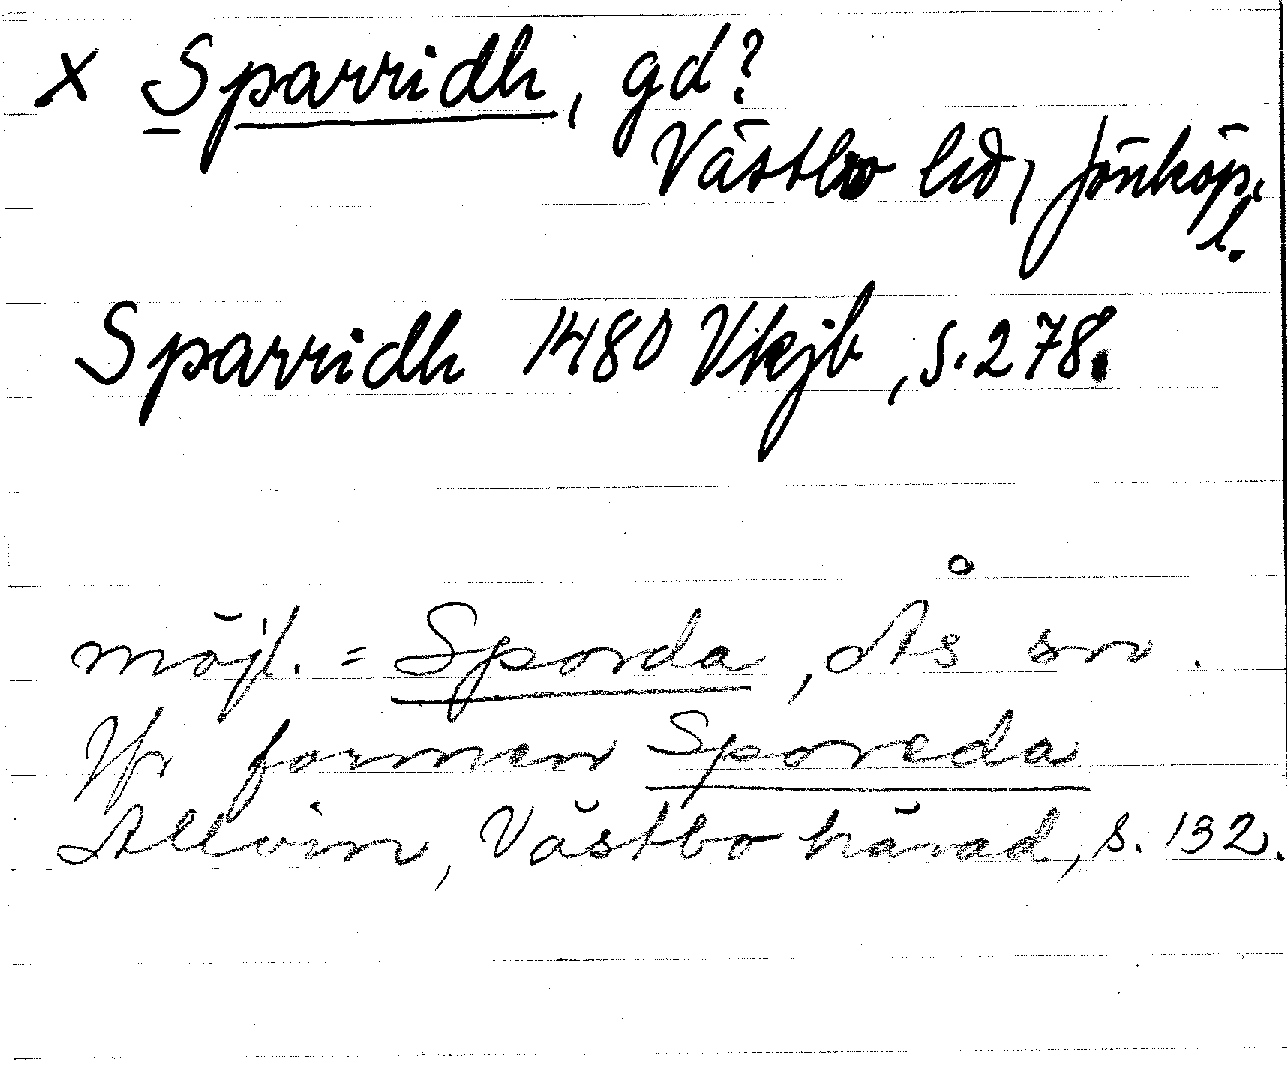 x Sparridh, gd?
Västbo hd, Jönköp.
l.
Sparridh 1480 Vkjb, s. 278.
möjl. = Sporda, Ås sn.
Jfr formen Sporeda
Allvin, Västbo härad, s. 132.